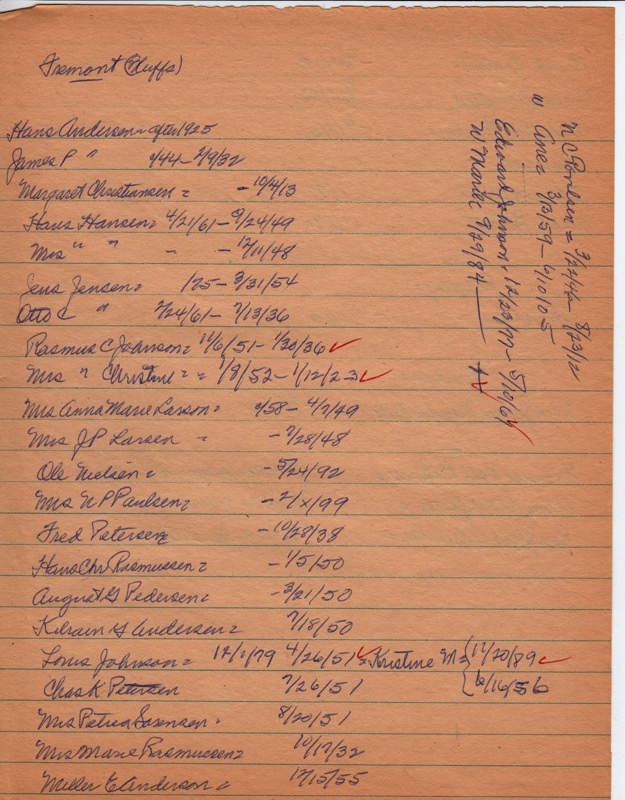 Fremont (Bluffs)
Hans Anderson = after 1925
James P " 9/44 - 2/9/32
Margaret Christiansen = - 10/4/13
Hans Hansen = 4/21/61 - 9/24/49
Mrs " " - - 12/11/48
Jens Jensen = 1/25 - 3/31/54
Otto C " 2/24/61 - 7/13/36
Rasmus C Johnson = 11/6/51 - 1/20/36 ✓
Mrs " Christine = = 1/8/52 - 1/12/23 ✓
Mrs Anna Marie Larson = 9/58 - 4/2/49
Mrs J P Larsen = - 7/28/48
Ole Nielsen = - 5/24/92
Mrs N P Paulsen = - 2/x/99
Fred Petersen - 10/28/38
Hans Chr Rasmussen = - 1/5/50
August G Pedersen = - 3/21/50
G Andersen = 7/18/50
Louis Johnson = 12/1/79 4/26/51 ✓ = Kristine M = { 11/20/89 ✓
Chas K Petersen 7/26/51 { 6/16/56
Mrs Petrea Sorensen = 8/20/51
Mrs Marie Rasmussen = 10/17/32
Miller E Anderson = 12/15/55
N C = 3/22/46 - 8/23/12
W Ane = 3/13/59 - 4/10/05
Edward Johnson = 12/23/77 - 5/10/61 ✓
W = 9/29/84 ✓